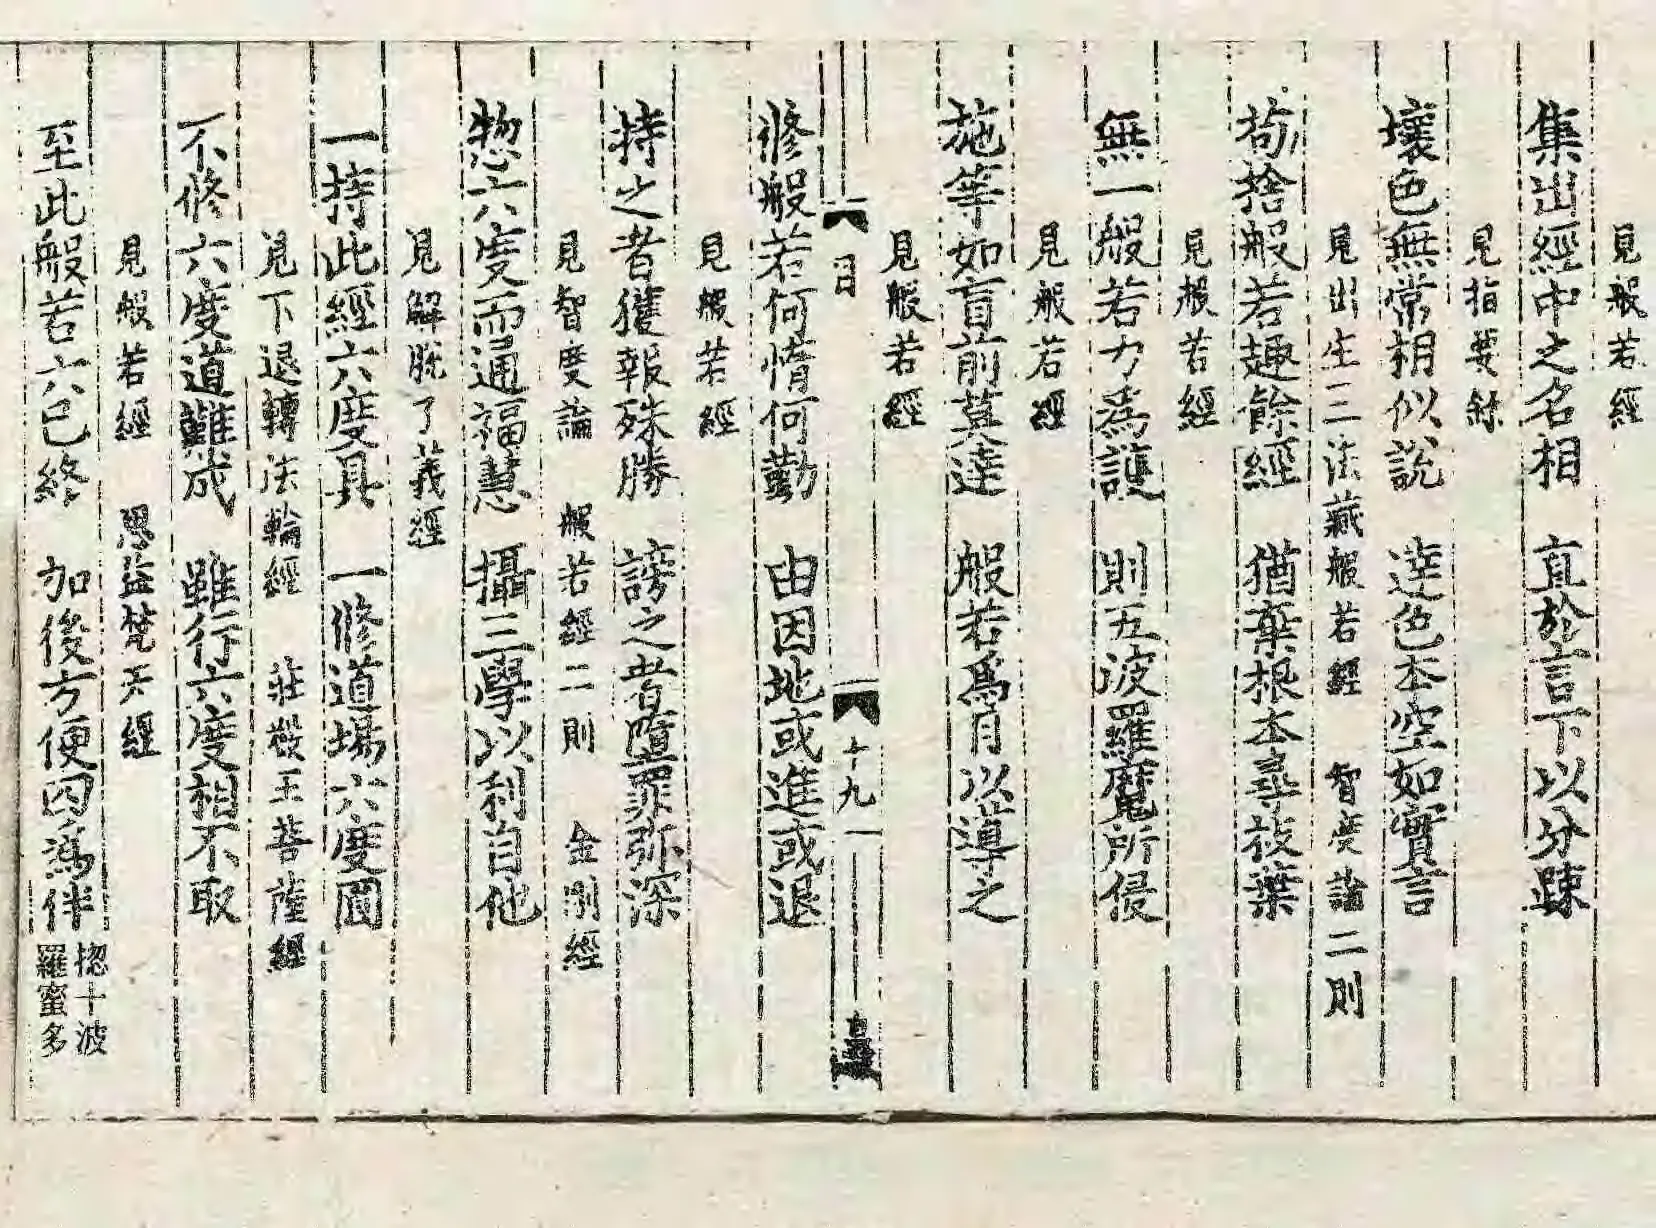 見般若經
集出經中之名相　直於言下以分疎
見指要錄
壞色無常相似說　達色本空如實言
見出生三法藏般若經　智度論二則
苟捨般若趣餘經　猶棄根本尋莜葉
見般若經
無一般若力為護　則五波羅魔所侵
見般若經
施等如盲前莫達　般若爲目以導之
見般若經
目　十九
修般若何惰何勤　由因地或進或退
見般若經
持之者獲報殊勝　謗之者墮罪弥深
見智度論　般若經二則　金剛經
惣六度而通福慧　攝三學以利自他
見解脫了義經
一持此經六度具　一修道場六度圓
見下退轉法輪經　莊嚴王菩薩經
不修六度道難成　雖行六度相不取
見般若經　思益梵天經
至此般若六已終　加後方便因為伴
揔十波
羅蜜多